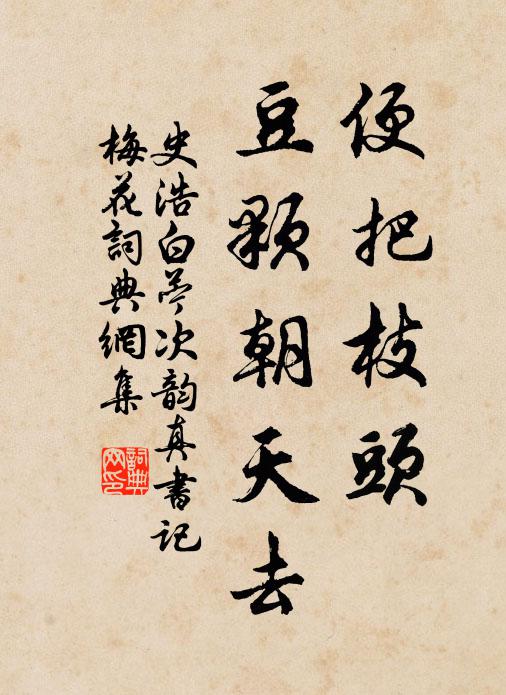 便把枝頭
豆顆朝天去
史浩白苧次韵真書記
梅花詞典網集
詞典
网印